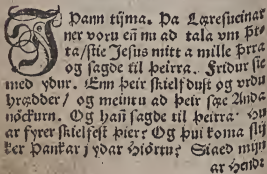 J Þann tijma. Þa Læresueinar
ner voru eñ nu ad tala vm þt-
ta/ stie Jesus mitt a mille þrra
og sagde til þeirra. Fridur sie
med ydur. Enn þeir skielfdust og vrdu
hrædder/ og meintu ad þeir sæe Anda
nöckurn. Og hañ sagde til þeirra. Hu
ar fyrer skielfest þier? Og þui koma slij
ker Þankar i ydar Hiörtu? Siaed mijn
ar Hendr